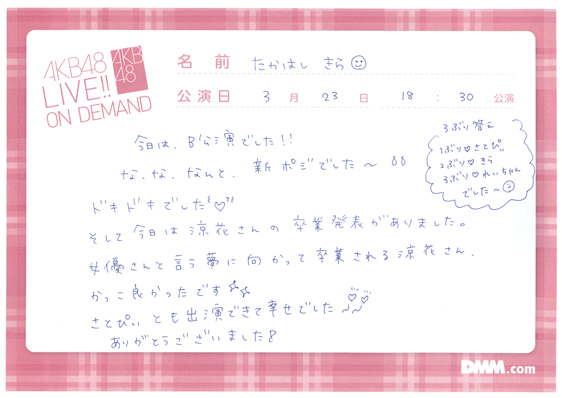 AKB48
LIVE!!
ON DEMAND
AKB
48
名前 たかはし きら
公演日 3月23日 18:30公演
今日は、B公演でした!!
な、な、なんと、新ポジでした〜
ドキドキでした
そして今日は涼花さんの卒業発表がありました。
女優さんと言う夢に向かって卒業される涼花さん、
かっこ良かったです
さとぴぃとも出演できて幸せでした〜
ありがとうございました
3ぶり答え
1ぶり♡さとぴぃ
2ぶり♡きら
3ぶり♡れいちゃん
でした〜
DMM.com